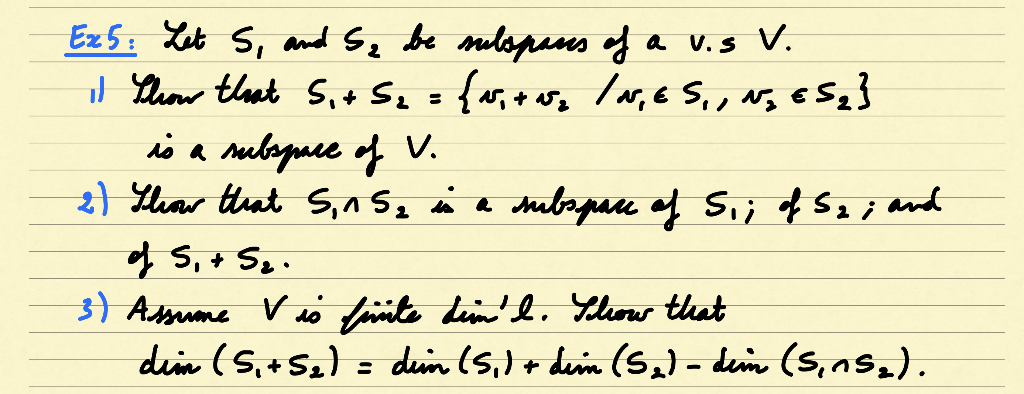 Ex5: Let S₁ and S₂ be subspaces of a v.s V.
1) Show that S₁ + S₂ = {v₁ + v₂ / v₁ ∈ S₁, v₂ ∈ S₂}
is a subspace of V.
2) Show that S₁ ∩ S₂ is a subspace of S₁; of S₂; and
of S₁ + S₂.
3) Assume V is finite dim'l. Show that
dim (S₁ + S₂) = dim (S₁) + dim (S₂) - dim (S₁ ∩ S₂).